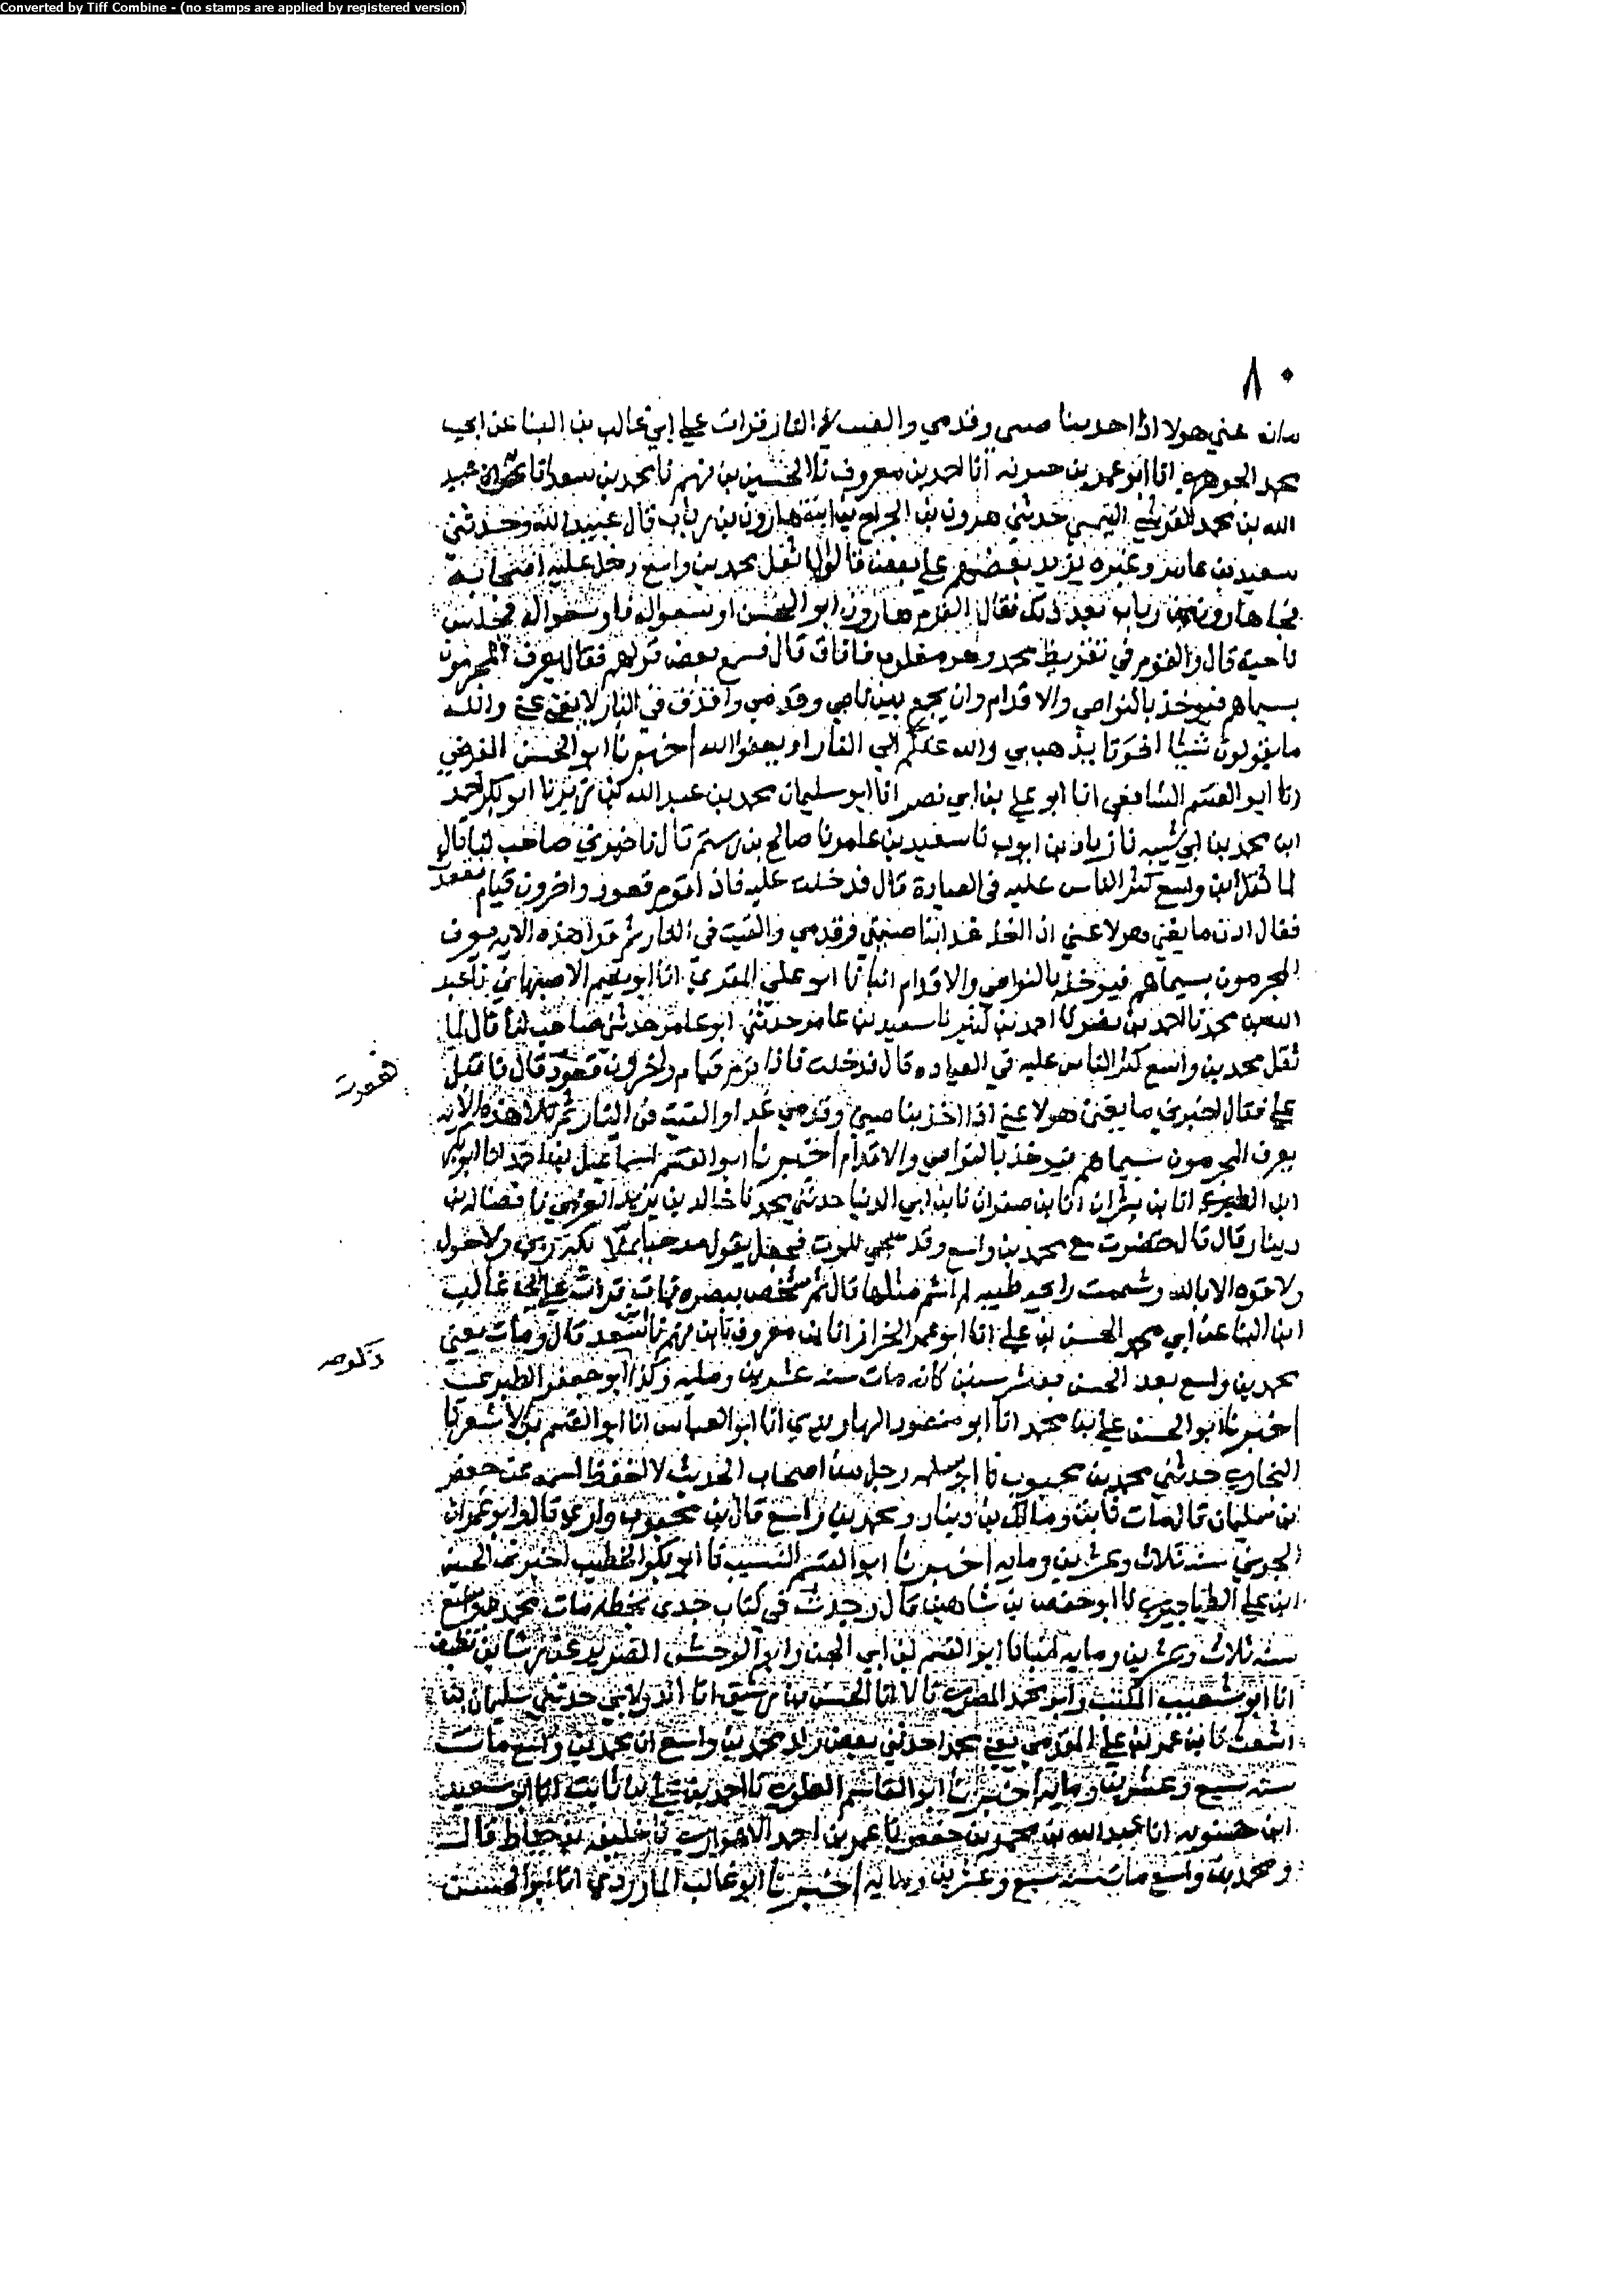 Converted by Tiff Combine - (no stamps are applied by registered version)
٨٠
عني هولا اذا اخذ بناصيتي وقدمي والقيت في النار قرات علي ابي غالب بن البنا عن ابي
محمد الجوهري انا ابو عمر بن حيويه انا احمد بن معروف نا الحسين بن فهم نا محمد بن سعد انا عبيد
الله بن محمد القرشي التيمي حدثني هرون بن الجراح بن ابنة هارون بن رياب قال عبيد الله وحدثني
سعيد بن عامر وغيره يزيد بعضهم علي بعض قالوا لما ثقل محمد بن واسع دخل عليه اصحابه
فجا هارون بن رياب بعد ذلك فقال القوم هارون ابو الحسن اوسعوا له فاوسعوا له فجلس
ناحية قال والقوم في تقريظ محمد وهو مغلوب فافاق قال فسمع بعض قولهم فقال يعرف المجرمون
بسيماهم فيوخذ بالنواصي والاقدام وان يجمع بين ناصيتي وقدمي واقذف في النار لا يغني عني والله
ما يقولون شيا اخوتا يذهب بي والله عنكم الي النار او يعفوا الله اخبرنا ابو الحسن الفرضي
انا ابو القسم الشافعي انا ابو علي بن ابي نصر انا ابو سليمان محمد بن عبد الله بن زبر نا ابو بكر احمد
ابن محمد بن ابي شيبه نا زياد بن ايوب نا سعيد بن عامر نا صالح بن رستم قال نا خبرني صاحب لنا قال
لما ثقل ابن واسع كثر الناس عليه في العيادة قال فدخلت عليه فاذا قوم قعود واخرون قيام فقعدت
فقال ادن ما يغني هولا عني اذا اخذ غدا بناصيتي وقدمي والقيت في النار ثم قرا هذه الايه يعرف
المجرمون بسيماهم فيوخذ بالنواصي والاقدام انبانا ابو علي المقري انا ابو نعيم الاصبهاني نا عبد
الله بن محمد نا احمد بن نصر نا احمد بن كثير نا سعيد بن عامر حدثني ابو عامر حدثني صاحب لنا قال لما
ثقل محمد بن واسع كثر الناس عليه في العياده قال فدخلت فاذا قوم قيام واخرون قعود قال فاقبل
علي فقال اخبرني ما يغني هولا عني اذا اخذ بناصيتي وقدمي غدا والقيت في النار ثم تلا هذه الايه
يعرف المجرمون بسيماهم فيوخذ بالنواصي والاقدام اخبرنا ابو القسم اسماعيل بن احمد انا ابو بكر
ابن الطبري انا ابن بشران انا ابن صفوان نا ابن ابي الدنيا حدثني محمد نا خالد بن يزيد نا فضاله بن
دينار قال قال حضرت مع محمد بن واسع وقد سجي للموت فجعل يقول مرحبا بملائكة ربي ولا حول
ولا قوه الا بالله وشممت رايحه طيبه لم اشم مثلها قال ثم شخص ببصره فمات قرات علي ابي غالب
ابن البنا عن ابي محمد الحسن بن علي انا ابو عمر الخزاز انا ابن معروف نا ابن فهم نا ابن سعد قال ومات يعني
محمد بن واسع بعد الحسن بعشر سنين كانه مات سنه عشرين ومايه وكذا ذكر ابو جعفر الطبري
اخبرنا ابو الحسن علي بن محمد انا ابو منصور النهاوندي انا ابو العباس انا ابو القسم بن الاشقر نا
البخاري حدثني محمد بن محبوب نا ابو سلمه رجل من اصحاب الحديث لا احفظ اسمه عن جعفر
بن سليمان قال مات ثابت ومالك بن دينار ومحمد بن واسع قال ابن محبوب واراه قال وابو عمران
الجوني سنه ثلاث وعشرين ومايه اخبرنا ابو القسم النسيب نا ابو بكر الخطيب اخبرني الحسين
ابن علي الطناجيري نا ابو حفص بن شاهين قال وجدت في كتاب جدي بخطه مات محمد بن واسع
سنه ثلاث وعشرين ومايه انبانا ابو القسم بن ابي الجن وابو الوحش المقري عن رشا بن نظيف
انا ابو شعيب المكتب وابو محمد المصري قالا انا الحسن بن رشيق انا الدولابي حدثني سليمان بن
اشعث نا ابن عمر بن علي المقدمي يعني محمدا حدثني بعض ولد محمد بن واسع ان محمد بن واسع مات
سنه سبع وعشرين ومايه اخبرنا ابو القاسم العلوي نا احمد بن علي بن ثابت انا ابو سعيد
ابن حسنويه انا عبد الله بن محمد بن جعفر نا عمر بن احمد الاهوازي نا خليفه بن خياط قال
ومحمد بن واسع مات سنه سبع وعشرين ومايه اخبرنا ابو غالب الماوردي انا ابو الحسن